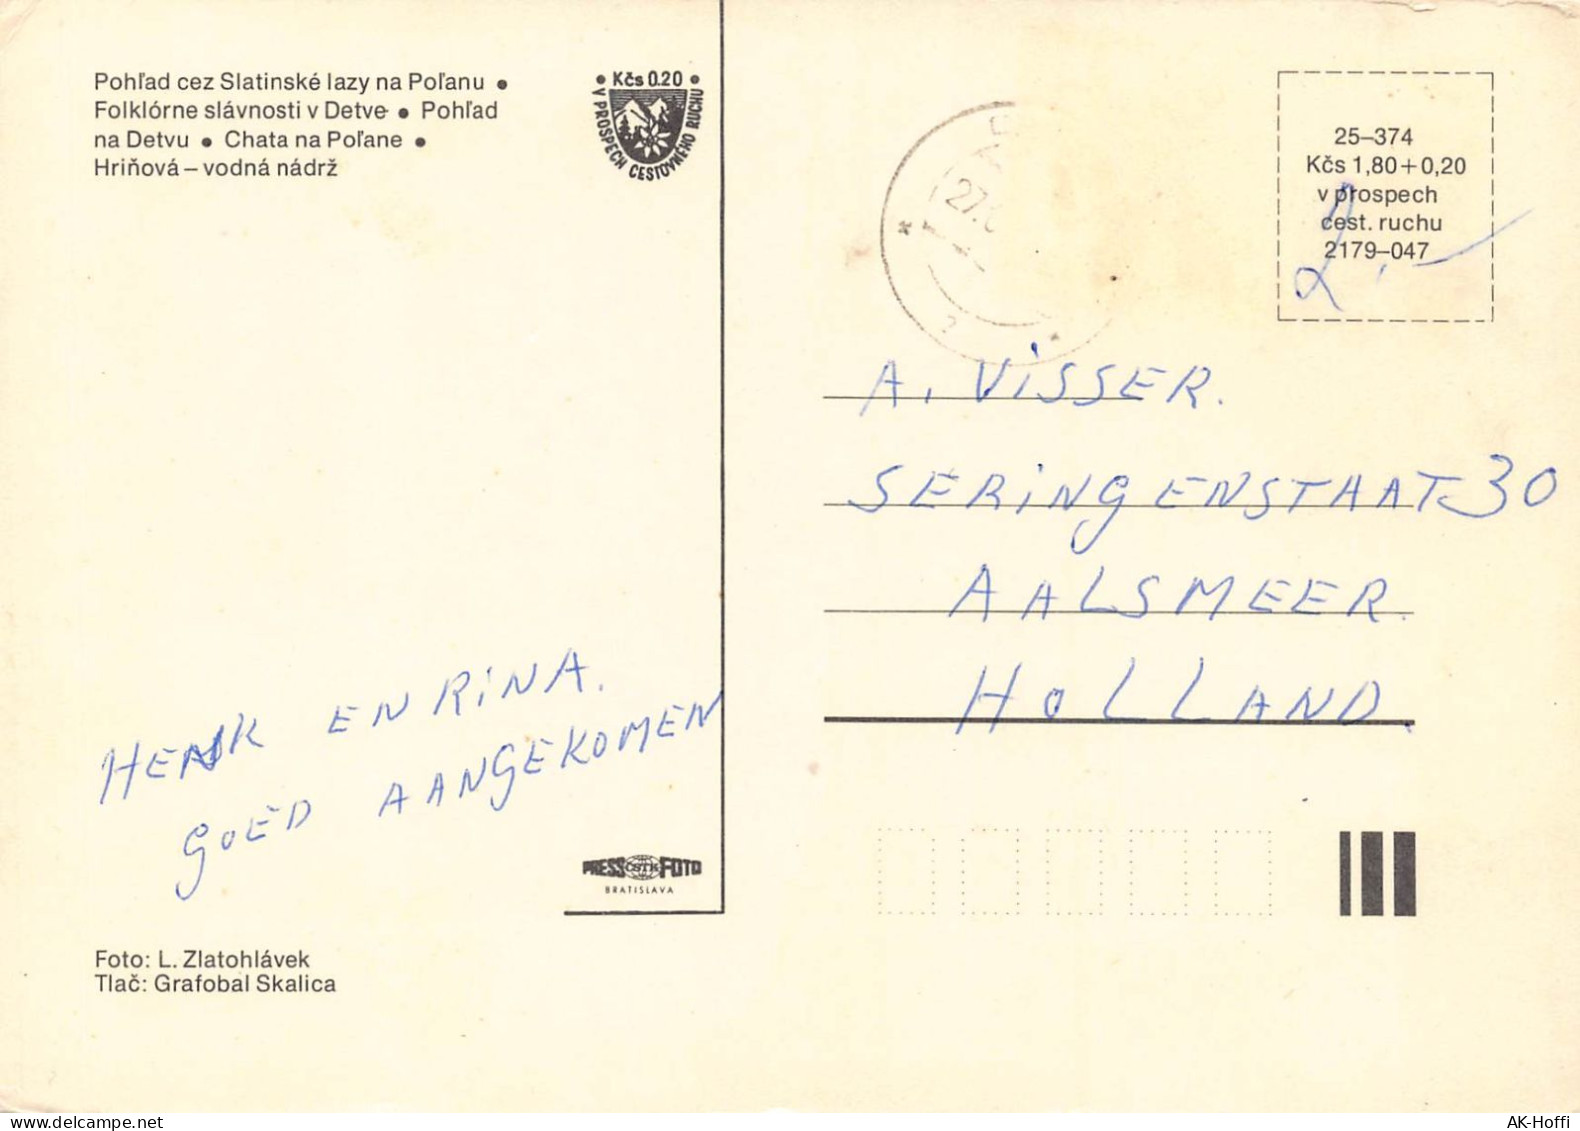 Pohľad cez Slatinské lazy na Poľanu •
Folklórne slávnosti v Detve • Pohľad
na Detvu • Chata na Poľane •
Hriňová – vodná nádrž
• Kčs 0.20 •
V PROSPECH CESTOVNÉHO RUCHU
25–374
Kčs 1,80+0,20
v prospech
cest. ruchu
2179–047
2,—
27.
A. VISSER.
SERINGENSTAAT 30
AALSMEER.
HOLLAND.
HENK EN RINA.
GOED AANGEKOMEN
PRESS ČSTK FOTO
BRATISLAVA
Foto: L. Zlatohlávek
Tlač: Grafobal Skalica
delcampe.net
AK-Hoffi